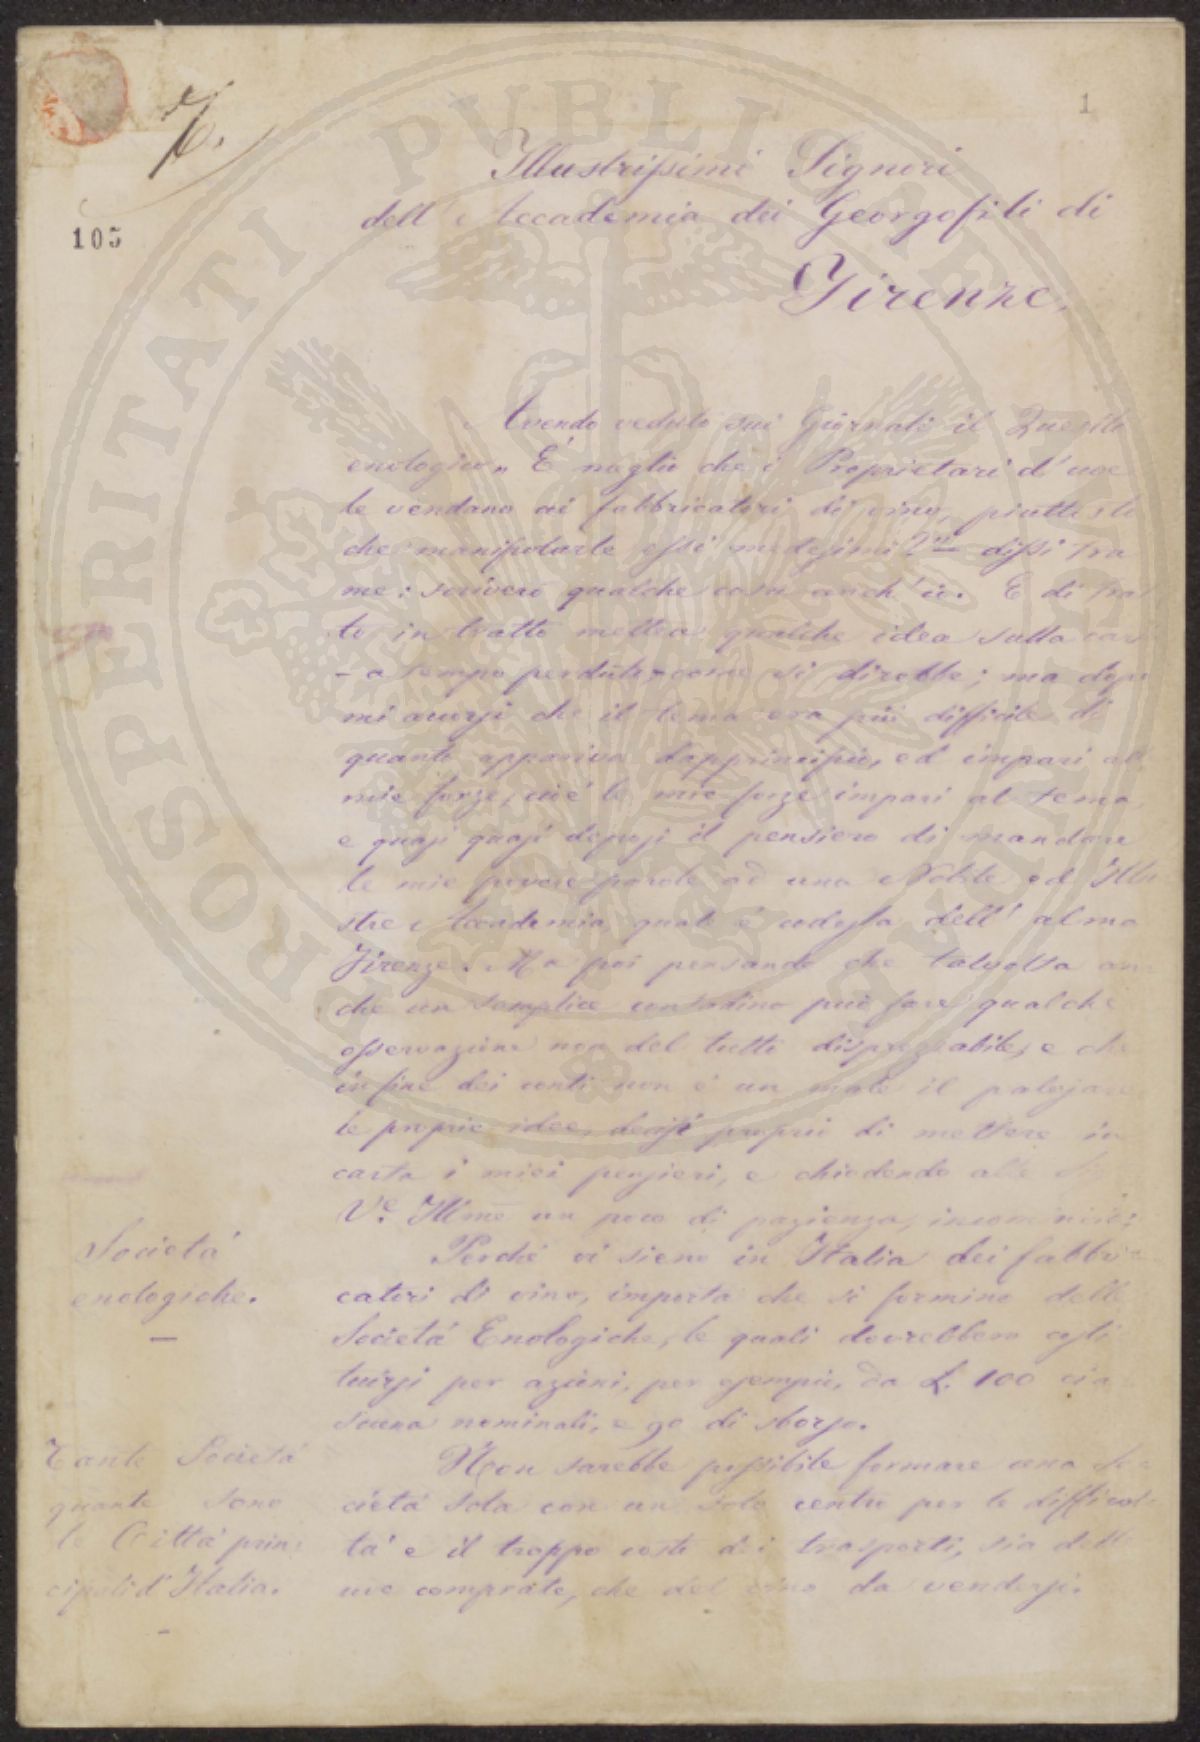 7.
1
105
Illustrissimi Signori
dell'Accademia dei Georgofili di
Firenze.
Avendo veduto sui Giornali il Quesito
enologico „ È meglio che i Proprietari d'uve
le vendano ai fabbricatori di vino, piuttosto
che manipolarle essi medesimi?„ dissi tra
me: scriverò qualche cosa anch'io. E di trat
to in tratto mettea qualche idea sulla car
- a tempo perduto - come si direbbe; ma dopo
mi accorsi che il tema era più difficile di
quanto appariva dapprincipio, ed impari al
mie forze, cioè le mie forze impari al tema,
e quasi quasi deposi il pensiero di mandare
le mie povere parole ad una Nobile ed Illu
stre Accademia, quale è codesta dell'alma
Firenze. Ma poi pensando che talvolta an
che un semplice contadino può fare qualche
osservazione non del tutto disprezzabile, e che
in fine dei conti non è un male il palesare
le proprie idee, decisi proprio di mettere in
carta i miei pensieri, e chiedendo alle
V.e Ill.me un poco di pazienza, incomincio:
Società
enologiche.
Perché vi sieno in Italia dei fabbri
catori di vino, importa che si formino delle
Società Enologiche, le quali dovrebbero costi
tuirsi per azioni, per esempio, da L. 100 cia
scuna nominali, e 90 di sborso.
Tante Società
quante sono
le Città prin:
cipali d'Italia.
Non sarebbe possibile formare una So
cietà sola con un solo centro per le difficol-
tà e il troppo costo dei trasporti, sia delle
uve comprate, che del vino da vendersi.
PROSPERITATI PVBLICAE